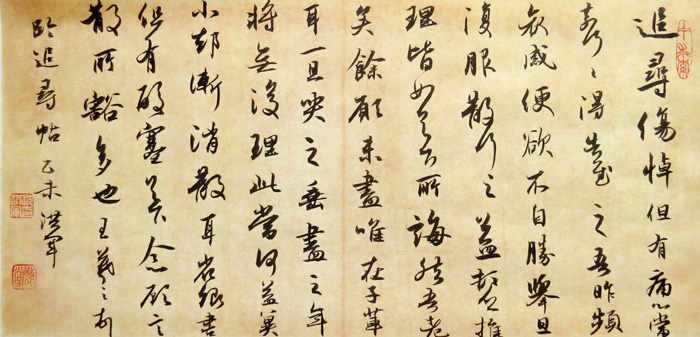 追尋傷悼但有痛心當
奈何〻得告慰之吾昨頻
哀感便欲不自勝舉旦
復服散行之益推
理皆如足下所誨然吾老
矣餘願未盡唯在子輩
耳一旦哭之垂盡之年
將無復理此當何益冀
小却漸消散耳省卿書
但有酸塞足下念故言
散所豁多也王羲之
臨追尋帖 乙未 洪軍